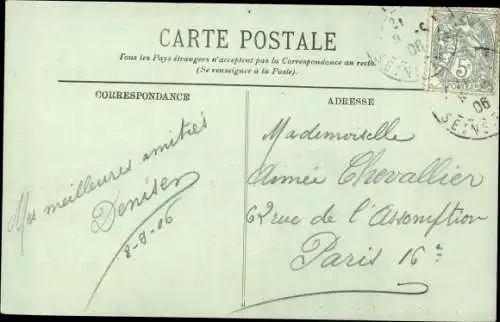 CARTE POSTALE
Tous les Pays étrangers n'acceptent pas la Correspondance au recto.
(Se renseigner à la Poste).
CORRESPONDANCE
Mes meilleures amitiés
Denise
8-9-06
ADRESSE
Mademoiselle
Aimée Chevallier
62 rue de l'Assomption
Paris 16e
5c
POSTES
06
SEINE
06
SEINE